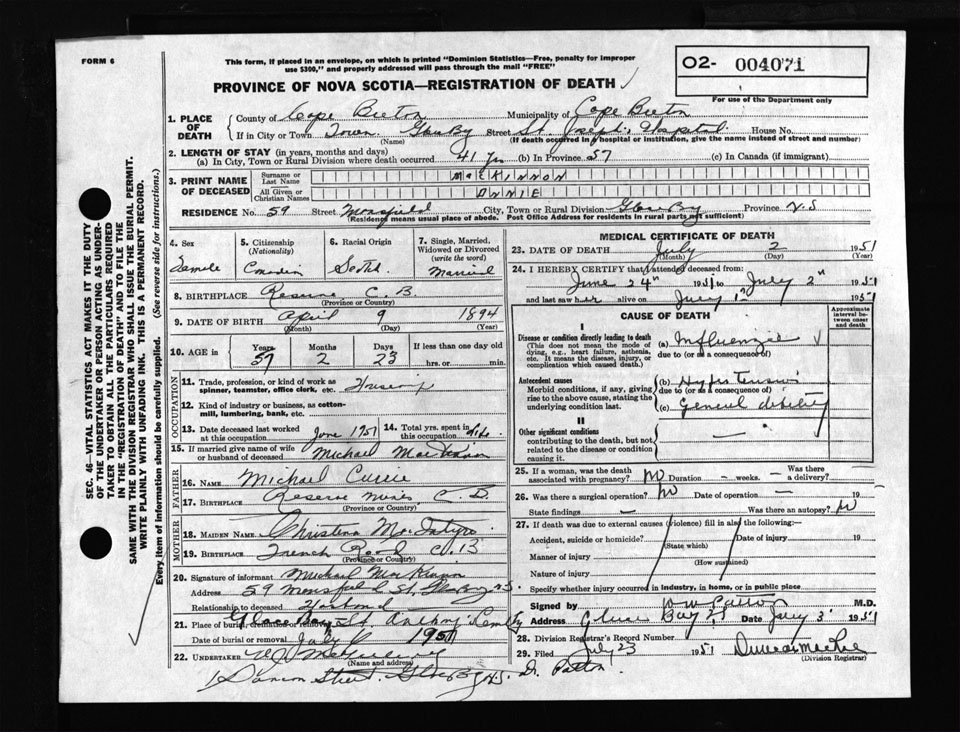 FORM 6
This form, if placed in an envelope, on which is printed "Dominion Statistics—Free, penalty for improper
use $300," and properly addressed will pass through the mail "FREE"
PROVINCE OF NOVA SCOTIA—REGISTRATION OF DEATH
O2- 004071
For use of the Department only
SEC. 46—VITAL STATISTICS ACT MAKES IT THE DUTY
OF THE UNDERTAKER OR PERSON ACTING AS UNDER-
TAKER TO OBTAIN ALL THE PARTICULARS REQUIRED
IN THE "REGISTRATION OF DEATH" AND TO FILE THE
SAME WITH THE DIVISION REGISTRAR WHO SHALL ISSUE THE BURIAL PERMIT.
WRITE PLAINLY WITH UNFADING INK. THIS IS A PERMANENT RECORD.
Every item of information should be carefully supplied. (See reverse side for instructions.)
1. PLACE OF DEATH
County of Cape Breton Municipality of Cape Breton
If in City or Town Town Glace Bay Street St. Joseph's Hospital House No.
(Name) (If death occurred in a hospital or institution, give the name instead of street and number)
2. LENGTH OF STAY (in years, months and days)
(a) In City, Town or Rural Division where death occurred 41 yrs (b) In Province 57 (c) In Canada (if immigrant)
3. PRINT NAME OF DECEASED
Surname or Last Name MacKINNON
All Given or Christian Names ANNIE
RESIDENCE No. 59 Street City, Town or Rural Division Glace Bay Province N.S
(Residence means usual place of abode. Post Office Address for residents in rural parts not sufficient)
4. Sex Female
5. Citizenship (Nationality) Canadian
6. Racial Origin Scotch
7. Single, Married, Widowed or Divorced (write the word) Married
8. BIRTHPLACE Reserve C.B.
(Province or Country)
9. DATE OF BIRTH April 9 1894
(Month) (Day) (Year)
10. AGE in Years 57 Months 2 Days 23 If less than one day old hrs. or min.
OCCUPATION
11. Trade, profession, or kind of work as spinner, teamster, office clerk, etc.
12. Kind of industry or business, as cotton-mill, lumbering, bank, etc.
13. Date deceased last worked at this occupation June 1951 14. Total yrs. spent in this occupation Life
15. If married give name of wife or husband of deceased Michael MacKinnon
FATHER
16. NAME Michael Currie
17. BIRTHPLACE Reserve Mines C.B.
(Province or Country)
MOTHER
18. MAIDEN NAME Christena McIntyre
19. BIRTHPLACE French Road C.B
(Province or Country)
20. Signature of informant Michael MacKinnon
Address 59
Relationship to deceased Husband
21. Place of burial, cremation or removal Glace Bay St. Anthony Cemetery
Date of burial or removal July 1951
22. UNDERTAKER
(Name and address)
Street. Glace Bay N.S.
MEDICAL CERTIFICATE OF DEATH
23. DATE OF DEATH July 2 1951
(Month) (Day) (Year)
24. I HEREBY CERTIFY that I attended deceased from:
June 24" 1951 to July 2" 1951
and last saw her alive on July 1951
CAUSE OF DEATH
Approximate interval between onset and death
I
Disease or condition directly leading to death
(This does not mean the mode of dying, e.g., heart failure, asthenia, etc. It means the disease, injury, or complication which caused death.)
(a) Influenzae
due to (or as a consequence of)
Antecedent causes
Morbid conditions, if any, giving rise to the above cause, stating the underlying condition last.
(b) Hyper Tension
due to (or as a consequence of)
(c) General debility
II
Other significant conditions
contributing to the death, but not related to the disease or condition causing it.
—
25. If a woman, was the death associated with pregnancy? No Duration — weeks. — Was there a delivery?
26. Was there a surgical operation? No Date of operation — 19
State findings — Was there an autopsy? No
27. If death was due to external causes (violence) fill in also the following:—
Accident, suicide or homicide? Date of injury 19
(State which)
Manner of injury
(How sustained)
Nature of injury
Specify whether injury occurred in industry, in home, or in public place
Signed by M.D.
Address Glace Bay Date July 3 1951
28. Division Registrar's Record Number
29. Filed July 23 1951 Duncan MacRae
(Division Registrar)
D. Patton